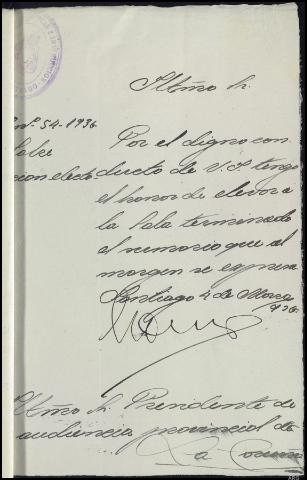 Iltmo Sr.
nº. 54-1936
Sobre
cion electo
Por el digno con
ducto de V.S. tengo
el honor de elevar a
la Sala terminado
el sumario que al
margen se expresa
Santiago 4 de Marzo
936
Iltmo Sr. Presidente de
audiencia provincial de
La Coruñ